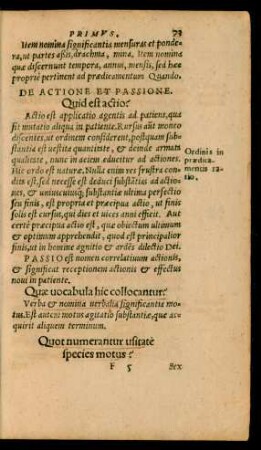 PRIMVS. 73
Item nomina significantia mensuras et ponde-
ra, ut partes aßis, drachma, mina. Item nomina
quæ discernunt tempora, annus, mensis, sed hæc
proprie pertinent ad prædicamentum Quando.
DE ACTIONE ET PASSIONE.
Quid est actio?
Actio est applicatio agentis ad patiens, qua
fit mutatio aliqua in patiente. Rursus aut moneo
discentes, ut ordinem considerent, postquam sub-
stantia est uestita quantitate, & deinde armata
qualitate, nunc in aciem educitur ad actiones.
Hic ordo est naturæ. Nulla enim res frustra con
dita est, sed necesse est deduci substātias ad actio-
nes, & uniuscuiusq; substantiæ ultima perfectio
seu finis, est propria et præcipua actio, ut finis
solis est cursus, qui dies et uices anni efficit. Aut
certe præcipua actio est, quæ obiectum ultimum
& optimum apprehendit, quod est principalior
finis, ut in homine agnitio & ardēs dilectio Dei.
Ordinis in
prædica-
mentis ra-
tio.
PASSIO est nomen correlatiuum actionis,
& significat receptionem actionis & effectus
noui in patiente.
Quæ uocabula hic collocantur?
Verba & nomina uerbalia significantia mo-
tus. Est autem motus agitatio substantiæ, quæ ac-
quirit aliquem terminum.
Quot numerantur usitate
species motus?
F 5 Sex